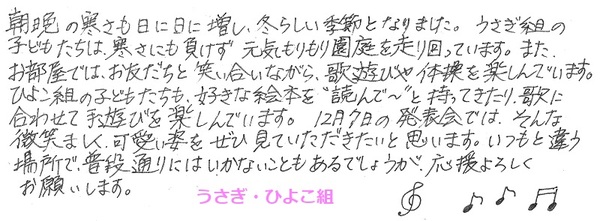 朝晩の寒さも日に日に増し、冬らしい季節となりました。うさぎ組の
子どもたちは、寒さにも負けず元気もりもり園庭を走り回っています。また、
お部屋では、お友だちと笑い合いながら、歌遊びや体操を楽しんでいます。
ひよこ組の子どもたちも、好きな絵本を"読んで〜"と持ってきたり、歌に
合わせて手遊びを楽しんでいます。12月7日の発表会では、そんな
微笑ましく、可愛い姿をぜひ見ていただきたいと思います。いつもと違う
場所で、普段通りにはいかないこともあるでしょうが、応援よろしく
お願いします。
うさぎ・ひよこ組